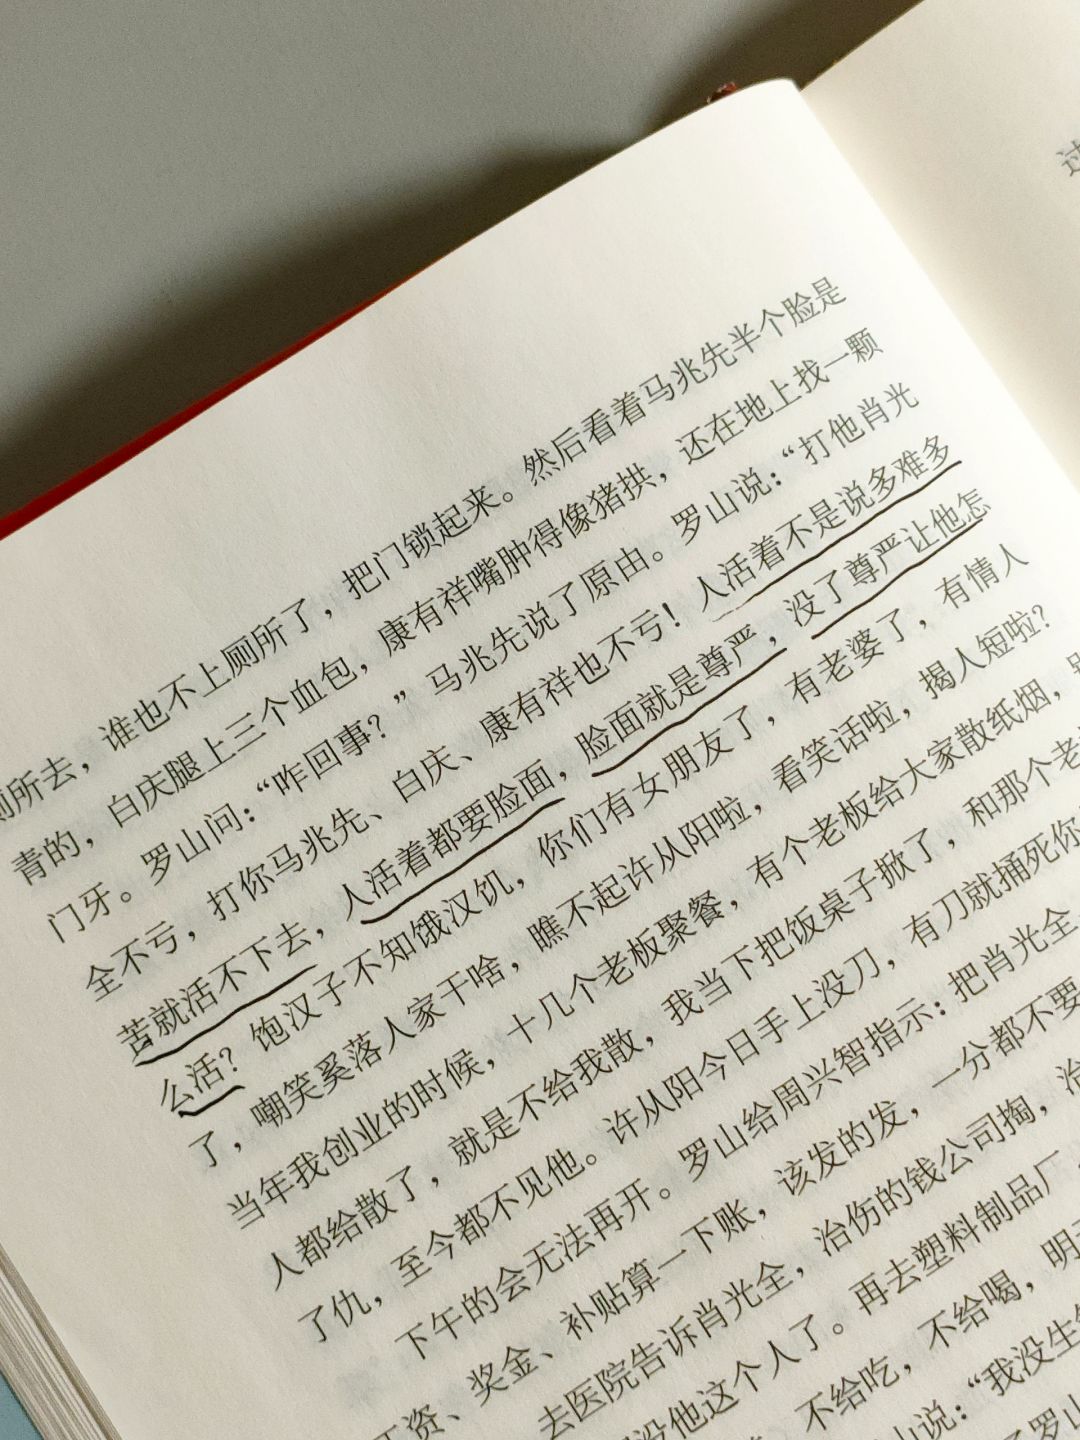 厕所去，谁也不上厕所了，把门锁起来。然后看着马兆先半个脸是
青的，白庆腿上三个血包，康有祥嘴肿得像猪拱，还在地上找一颗
门牙。罗山问：“咋回事？”马兆先说了原由。罗山说：“打他肖光
全不亏，打你马兆先、白庆、康有祥也不亏！人活着不是说多难多
苦就活不下去，人活着都要脸面，脸面就是尊严，没了尊严让他怎
么活？饱汉子不知饿汉饥，你们有女朋友了，有老婆了，有情人
了，嘲笑奚落人家干啥，瞧不起许从阳啦，看笑话啦，揭人短啦？
当年我创业的时候，十几个老板聚餐，有个老板给大家散纸烟，别
人都给散了，就是不给我散，我当下把饭桌子掀了，和那个老
了仇，至今都不见他。许从阳今日手上没刀，有刀就捅死你
下午的会无法再开。罗山给周兴智指示：把肖光全
工资、奖金、补贴算一下账，该发的发，一分都不要
去医院告诉肖光全，治伤的钱公司掏，治
没他这个人了。再去塑料制品厂，
不给吃，不给喝，明天
山说：“我没生
了罗山
过